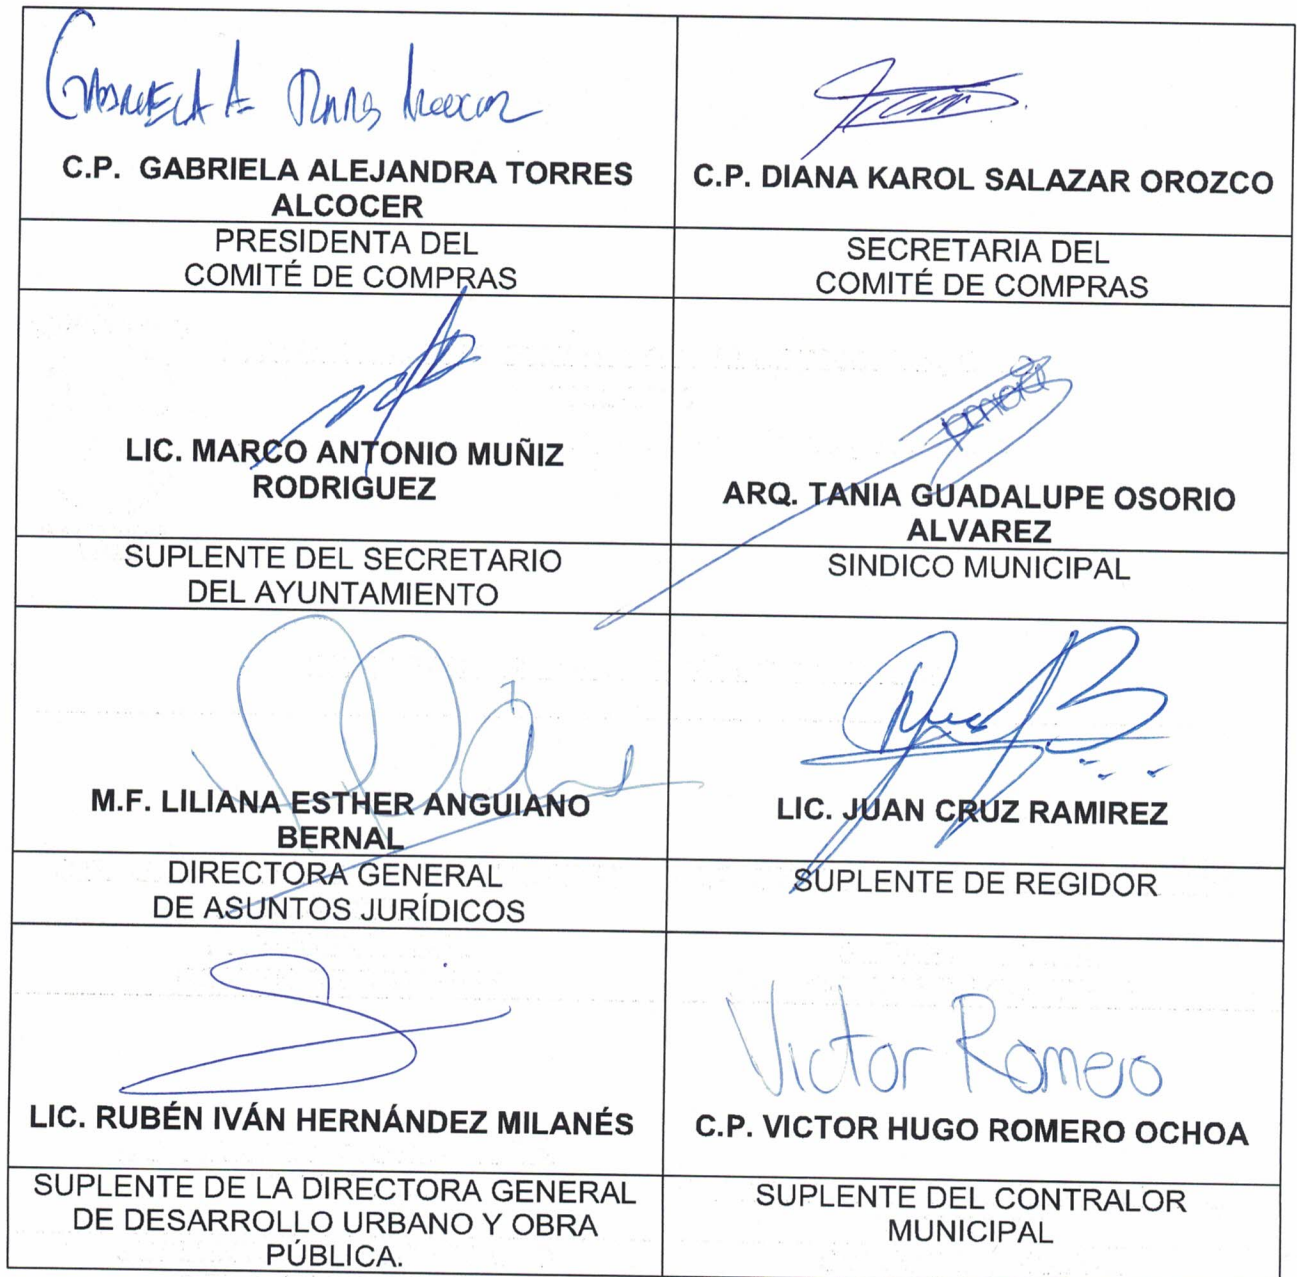 GABRIELA A. TORRES Alcocer
C.P. GABRIELA ALEJANDRA TORRES
ALCOCER
C.P. DIANA KAROL SALAZAR OROZCO
PRESIDENTA DEL
COMITÉ DE COMPRAS
SECRETARIA DEL
COMITÉ DE COMPRAS
LIC. MARCO ANTONIO MUÑIZ
RODRIGUEZ
ARQ. TANIA GUADALUPE OSORIO
ALVAREZ
SUPLENTE DEL SECRETARIO
DEL AYUNTAMIENTO
SINDICO MUNICIPAL
M.F. LILIANA ESTHER ANGUIANO
BERNAL
LIC. JUAN CRUZ RAMIREZ
DIRECTORA GENERAL
DE ASUNTOS JURÍDICOS
SUPLENTE DE REGIDOR
Victor Romero
LIC. RUBÉN IVÁN HERNÁNDEZ MILANÉS
C.P. VICTOR HUGO ROMERO OCHOA
SUPLENTE DE LA DIRECTORA GENERAL
DE DESARROLLO URBANO Y OBRA
PÚBLICA.
SUPLENTE DEL CONTRALOR
MUNICIPAL